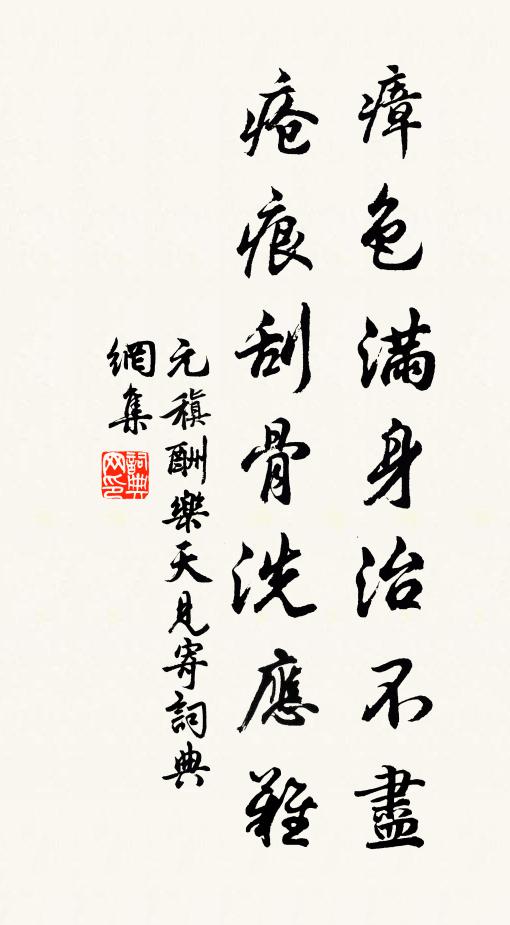 瘴色滿身治不盡
瘡痕刮骨洗應難
元稹酬樂天見寄詞典
網集
詞典
网印